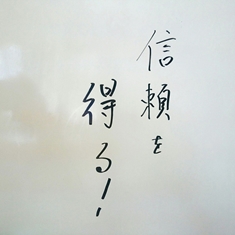 信頼を
得る!